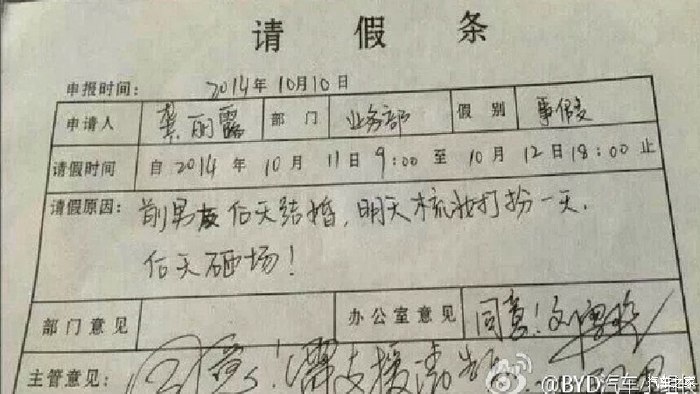 请假条
申报时间: 2014年10月10日
申请人 龚丽露 部门 业务部 假别 事假
请假时间 自2014年10月11日9:00至10月12日18:00止
请假原因: 前男友后天结婚，明天梳妆打扮一天.
后天砸场!
部门意见 办公室意见 同意!
主管意见: 同意! 需支援请告
@BYD汽车
汽车之家